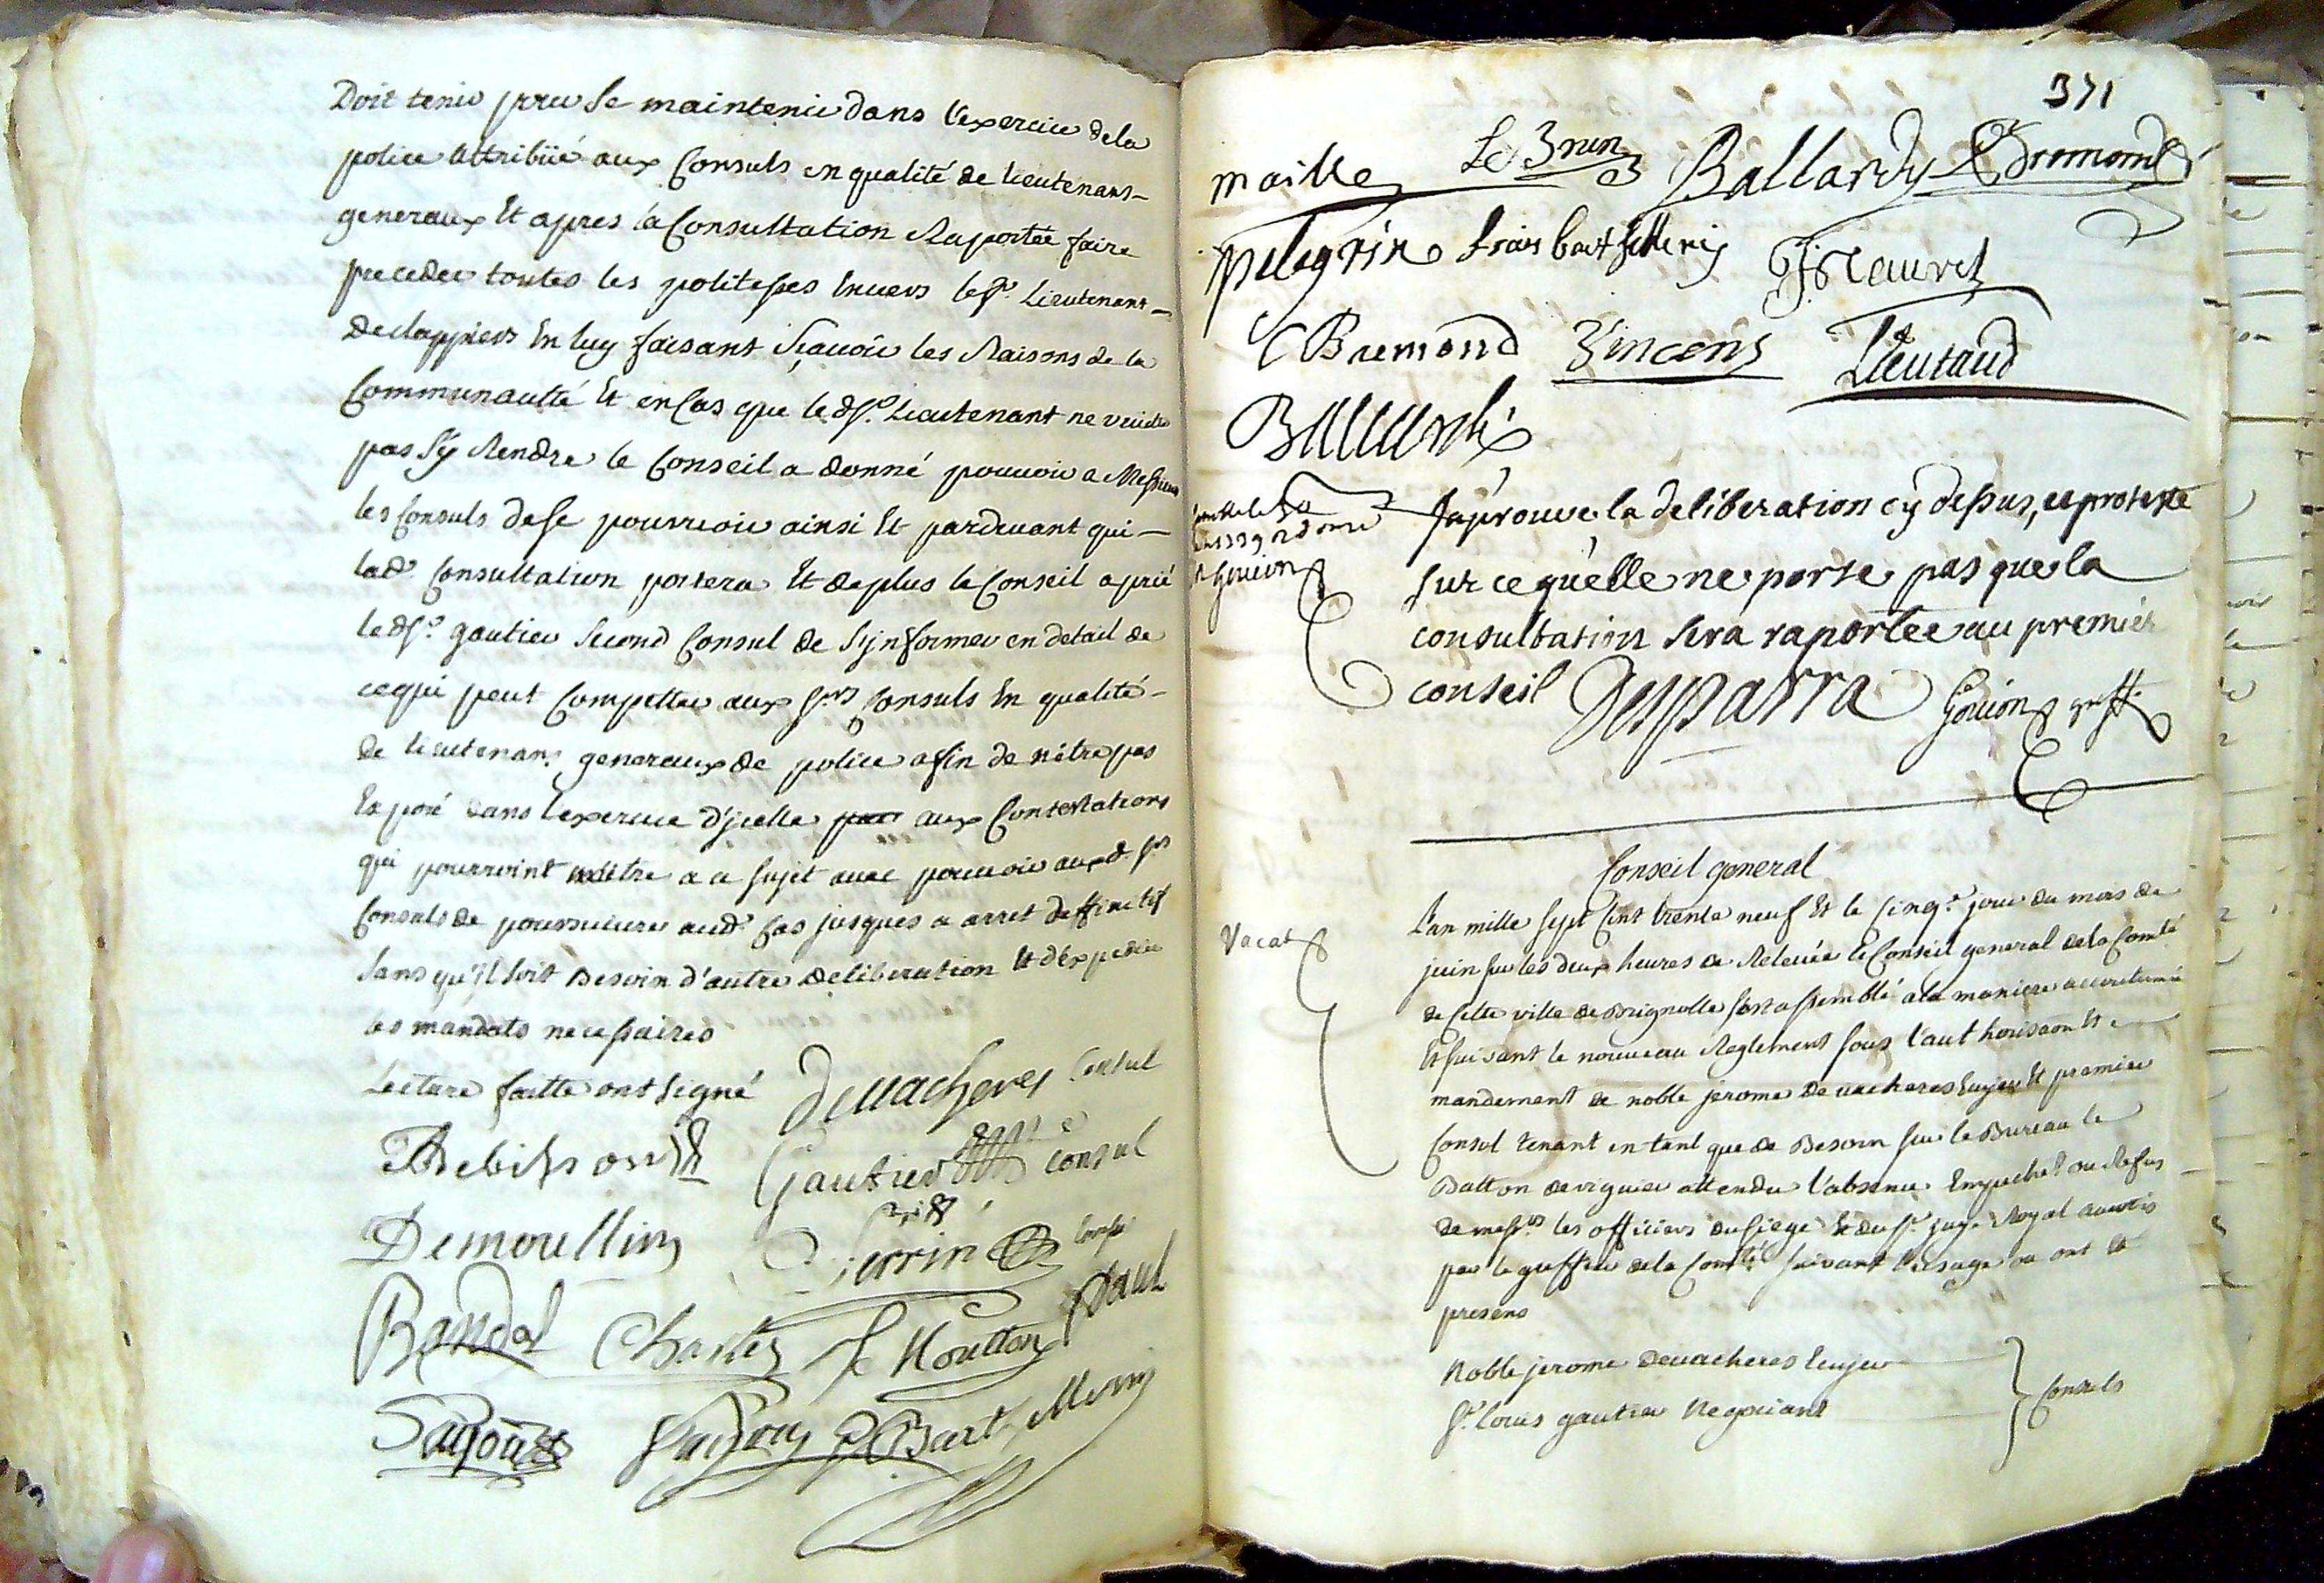 Doit tenir pour se maintenir dans l'exercice de la
police attribüé aux Consuls en qualité de Lieutenans
generaux Et apres la Consultation Raportée faire
preceder toutes les politesses Envers le Sr. Lieutenant
De clappiers En luy faisant Sçavoir les Raisons de la
Communauté Et en Cas que le dSr. Lieutenant ne veuille
pas S'y Rendre le Conseil a donné pouvoir a Messieurs
les Consuls de se pourvoir ainsi Et pardevant qui
lade. Consultation portera Et de plus le Conseil a prié
le dSr. gautier Second Consul de S'ynformer en detail de
ce qui peut Competter aux Srs Consuls En qualité
de Lieutenans generaux de police afin de n'être pas
Exposé dans l'exercice d'jcelle aux Contestations
qui pourroint naître a ce Sujet avec pouvoir auxd. Srs
Consuls de poursuivre aud. Cas jusques a arret deffinitif
Sans qu'jl soit Besoin d'autre Deliberation Et d'Expedier
les mandats necessaires
Lecture faitte ont Signé Devacheres Consul
Gautier Consul
Demoullin Perrin Consul
Randal Charles J Moutton Paul
Sauvaire Bart
371
maille Le Brun Ballardy Bremond
pelegrin frois bart J. Fleauret
C Bremond Vincens Lieutaud
J'aprouve la deliberation cy dessus, et proteste
Gouion sur ce qu'elle ne porte pas que la
consultation sera raportée au premier
conseil Desparra Gouion greff.
Conseil general
Vacat
L'an mille Sept Cent trente neuf Et le Cinqe. jour du mois de
juin Sur les deux heures de Relevée le Conseil general de la Comté
de Cette ville de Brignolle s'est assemblé a la maniere accoutumée
Et suivant le nouveau Reglement sous l'authorisaon Et
mandement de noble jerome De vacheres Ecuyer Et premier
Consul tenant en tant que de Besoin Sur le Bureau le
Batton de viguier attendu l'absence Empechet ou Refus
de messrs les officiers du Siege Et du Sr. juge Royal avertis
par le greffier de la Comté Suivant l'usage ou ont Eté
presens
Noble jerome Devacheres Ecuyer
Sr. Louis gautier Negotiant
Consuls